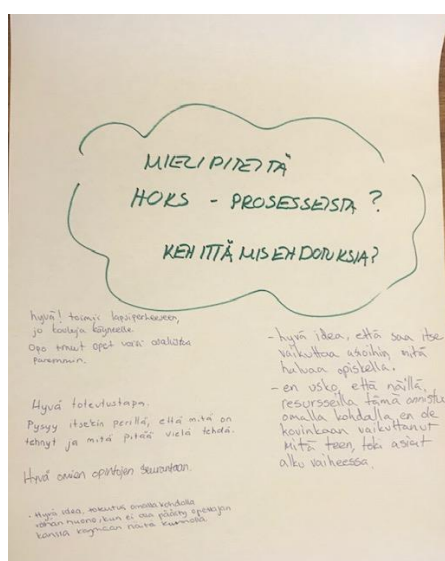 MIELIPITEITÄ
HOKS - PROSESSEISTA ?
KEHITTÄMISEHDOTUKSIA?
hyvä! toimii lapsiperheeseen,
jo kouluja käyneelle.
Opo
paremmin.
Hyvä toteutustapa.
Pysyy itsekin perillä, että mitä on
tehnyt ja mitä pitää vielä tehdä.
Hyvä omien opintojen seurantaan.
- Hyvä idea, toteutus omalla kohdalla
vähän huono, kun ei opettajan
kanssa käymään näitä kunnolla
- hyvä idea, että saa itse
vaikuttaa asioihin mitä
haluaa opiskella.
- en usko, että näillä
resursseilla tämä onnistu
omalla kohdalla, en ole
kovinkaan vaikuttanut
mitä teen, toki asiat
alku vaiheessa.